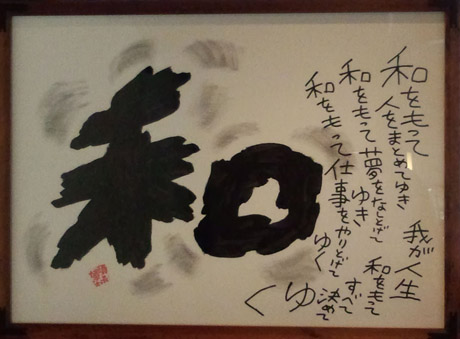 和
和をもって
人をまとめてゆき
和をもって夢をなしとげて
ゆき
和をもって仕事をやりとげて
ゆく
我が人生
和をもって
すべて
決めて
ゆく